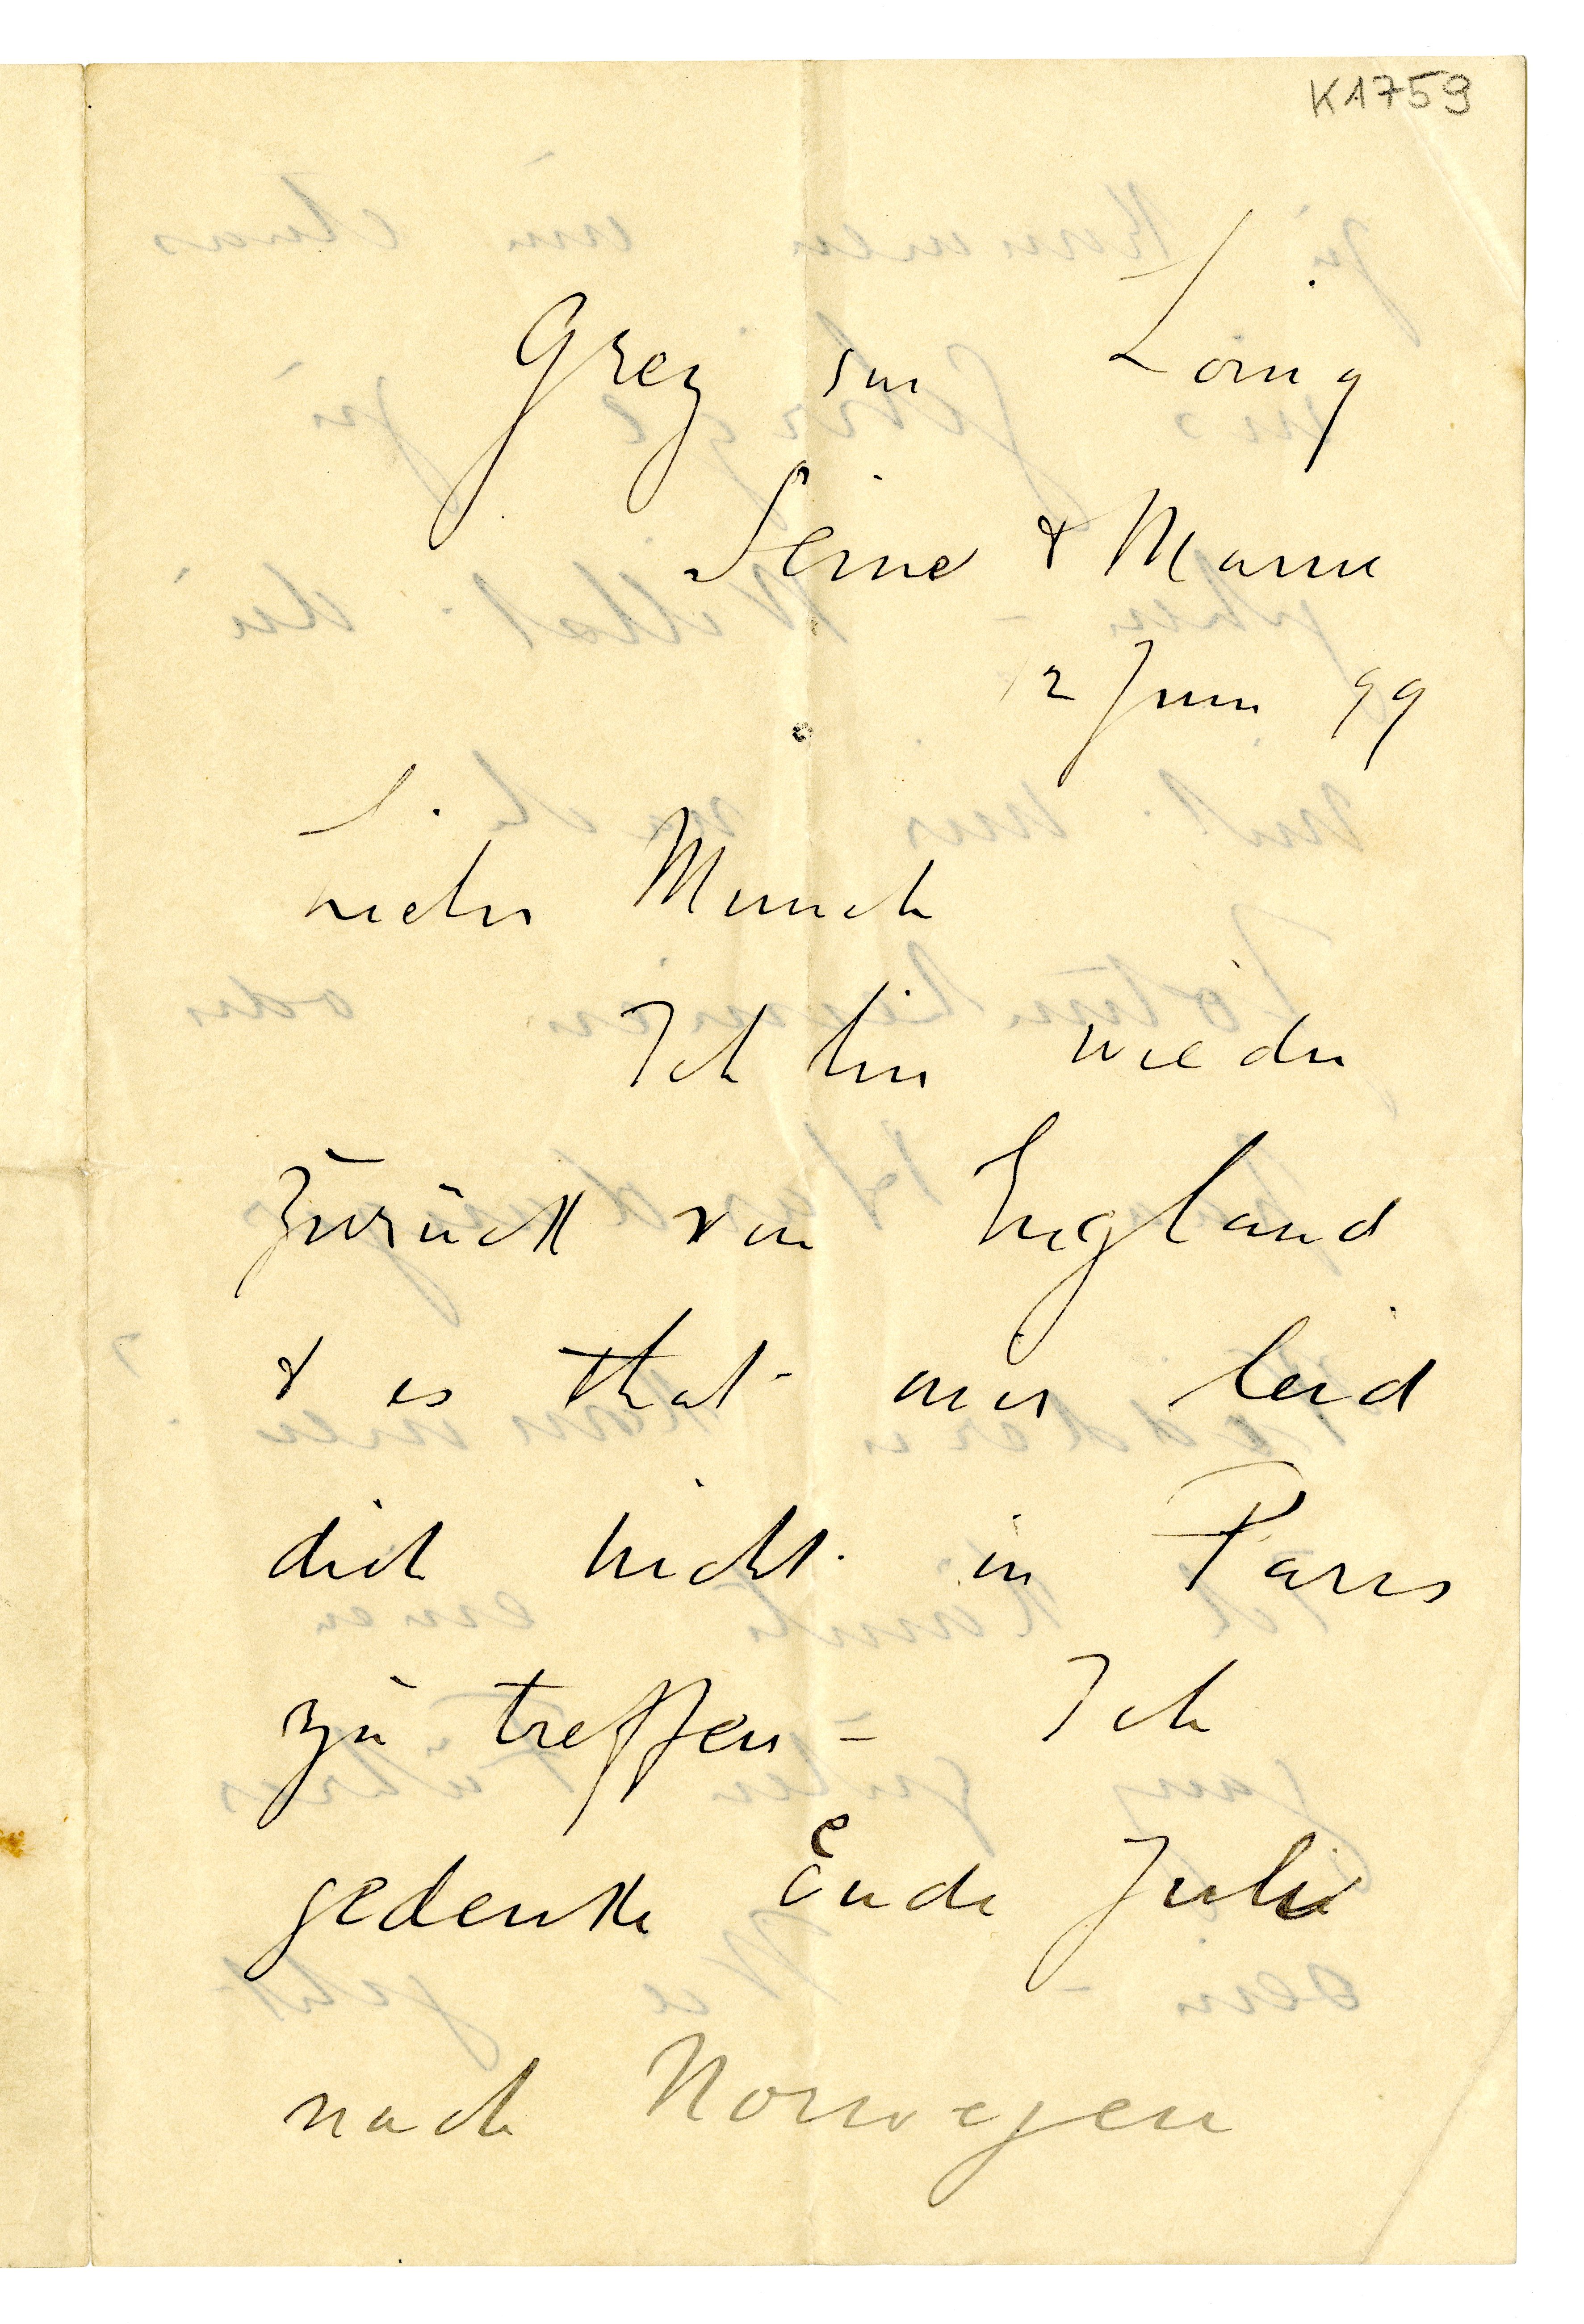 K1759
Grez sur Loing
Seine & Marne
12 Juni 99
Lieber Munch
Ich bin wieder
zurück von England
& es that mir leid
dich nicht in Paris
zu treffen = Ich
gedenke Ende Juli
nach Norwegen